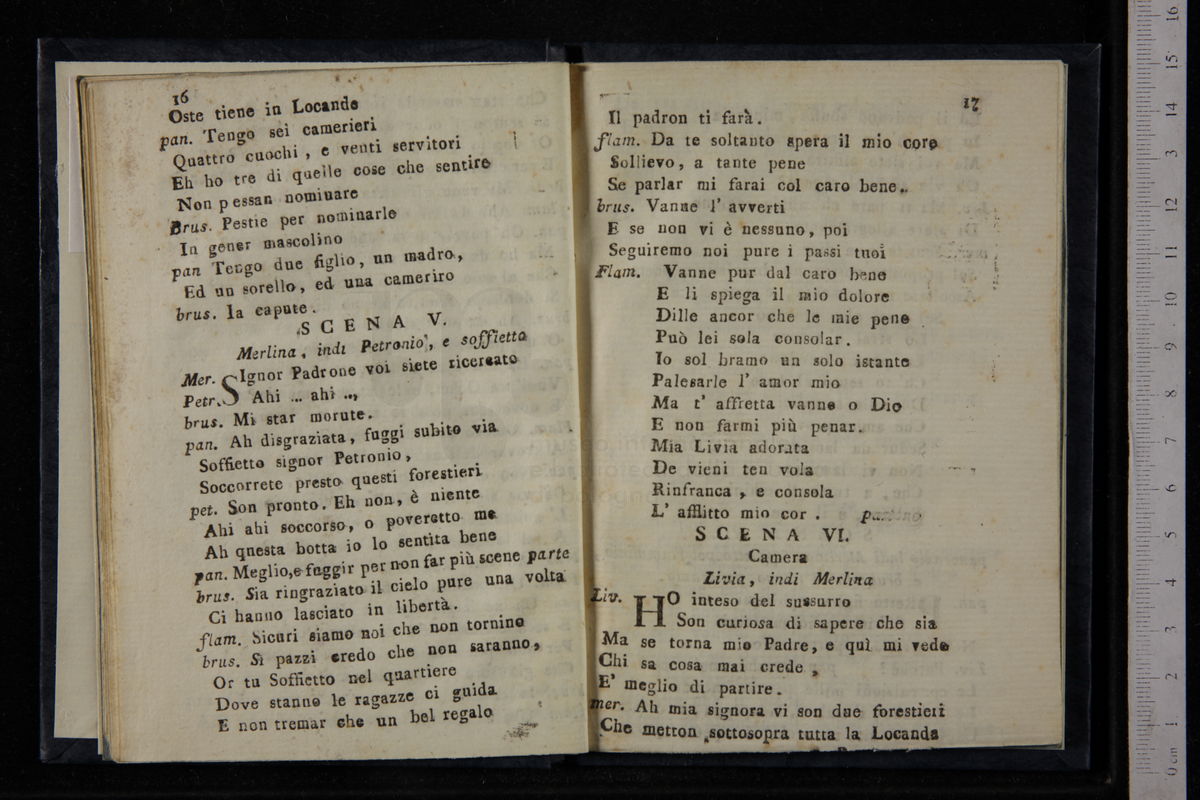 16
Oste tiene in Locande
pan. Tengo sei camerieri
Quattro cuochi , e venti servitori
Eh ho tre di quelle cose che sentire
Non pessan nominare
Brus. Pestie per nominarle
In gener mascolino
pan Tengo due figlio, un madro,
Ed un sorello, ed una cameriro
brus. Ia capute.
SCENA V.
Merlina, indi Petronio, e soffietto
Mer. SIgnor Padrone voi siete ricercato
Petr. Ahi ... ahi ..,
brus. Mi star morute.
pan. Ah disgraziata, fuggi subito via
Soffietto signor Petronio,
Soccorrete presto questi forestieri
pet. Son pronto. Eh non, è niente
Ahi ahi soccorso, o poveretto me
Ah qnesta botta io lo sentita bene
pan. Meglio,e fuggir per non far più scene parte
brus. Sia ringraziato il cielo pure una volta
Ci hanno lasciato in libertà.
flam. Sicuri siamo noi che non tornino
brus. Sì pazzi credo che non saranno,
Or tu Soffietto nel quartiere
Dove stanno le ragazze ci guida
E non tremar che un bel regalo
17
Il padron ti farà.
flam. Da te soltanto spera il mio core
Sollievo, a tante pene
Se parlar mi farai col caro bene..
brus. Vanne l' avverti
E se non vi è nessuno, poi
Seguiremo noi pure i passi tuoi
Flam. Vanne pur dal caro bene
E li spiega il mio dolore
Dille ancor che le mie pene
Può lei sola consolar.
Io sol bramo un solo istante
Palesarle l' amor mio
Ma t' affretta vanne o Dio
E non farmi più penar.
Mia Livia adorata
De vieni ten vola
Rinfranca , e consola
L' afflitto mio cor . partino
SCENA VI.
Camera
Livia, indi Merlina
Liv. HO inteso del sussurro
Son curiosa di sapere che sia
Ma se torna mio Padre, e quì mi vede
Chi sa cosa mai crede ,
E' meglio di partire.
mer. Ah mia signora vi son due forestieri
Che metton sottosopra tutta la Locanda